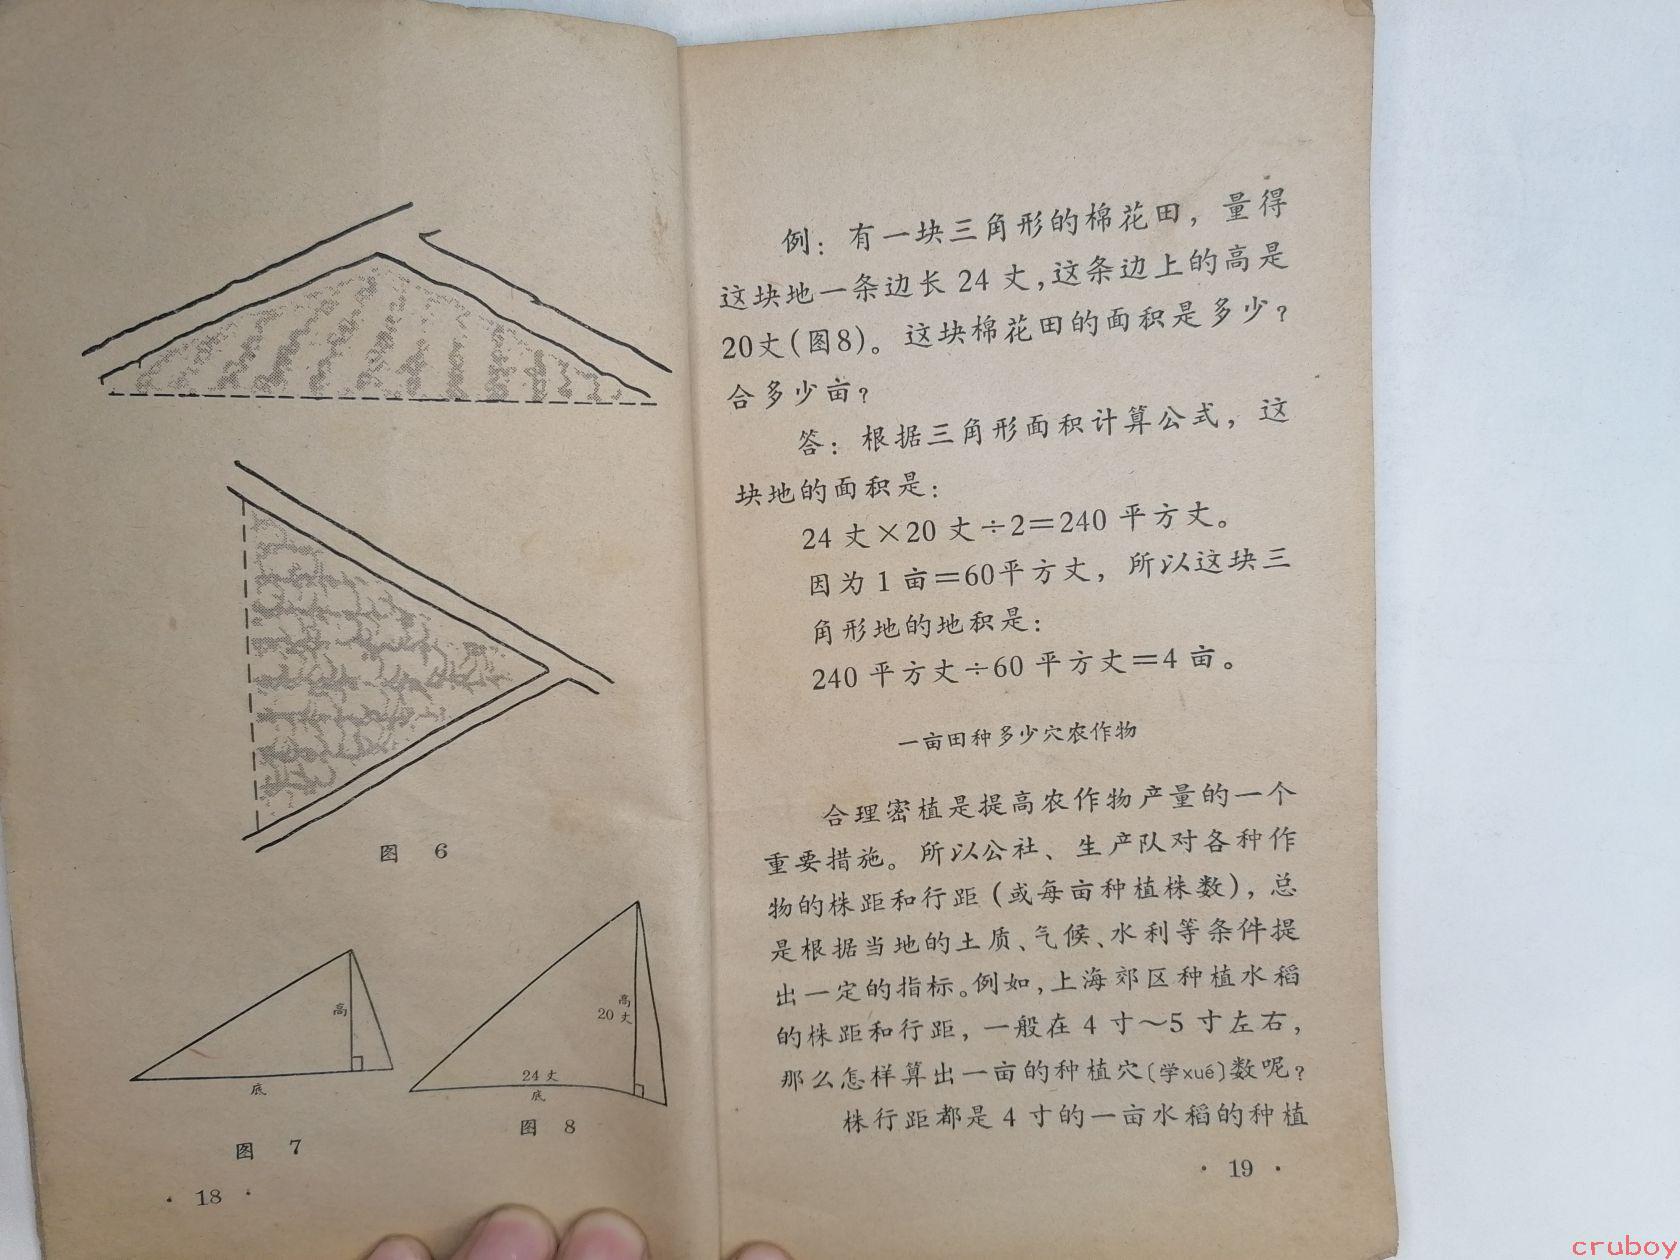 图 6
高
底
图 7
高
20 丈
24 丈
底
图 8
· 18 ·
例：有一块三角形的棉花田，量得
这块地一条边长 24 丈，这条边上的高是
20丈（图8）。这块棉花田的面积是多少？
合多少亩？
答：根据三角形面积计算公式，这
块地的面积是：
24 丈×20 丈÷2＝240 平方丈。
因为 1 亩＝60平方丈，所以这块三
角形地的地积是：
240 平方丈÷60 平方丈＝4 亩。
一亩田种多少穴农作物
合理密植是提高农作物产量的一个
重要措施。所以公社、生产队对各种作
物的株距和行距（或每亩种植株数），总
是根据当地的土质、气候、水利等条件提
出一定的指标。例如，上海郊区种植水稻
的株距和行距，一般在 4 寸～5 寸左右，
那么怎样算出一亩的种植穴〔学xué〕数呢？
株行距都是 4 寸的一亩水稻的种植
· 19 ·
cruboy